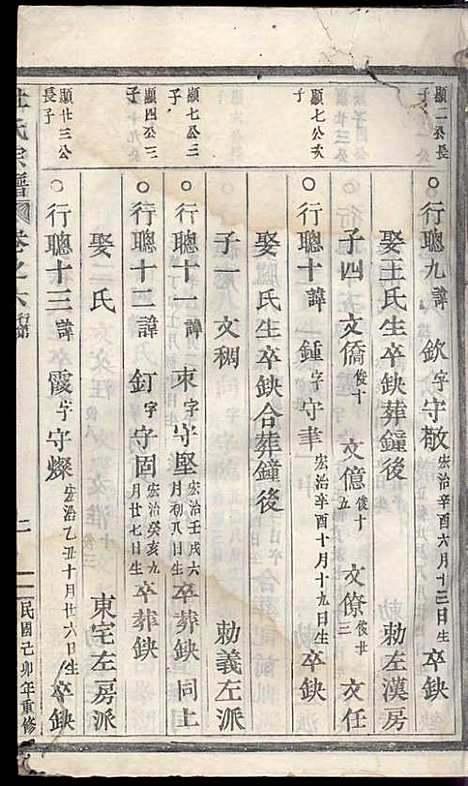 顯二公長子
○行聰九諱欽字守敬宏治辛酉六月十三日生卒缺
娶王氏生卒缺葬鐘後 勅左漢房
子四 文僑俊十 文億俊十五 文僚俊廿三 文任
顯七公次子
○行聰十諱鍾字守聿宏治辛酉十月十九日生卒缺
娶 氏生卒缺合葬鐘後
子一 文稠 勅義左派
顯七公三子
○行聰十一諱東字守堅宏治壬戌六月初八日生卒葬缺同上
顯四公三子
○行聰十二諱釘字守固宏治癸亥九月廿七日生卒葬缺
娶 氏 東宅左房派
顯廿三公長子
○行聰十三諱霞字守燦宏治乙丑十月廿六日生卒缺
杜氏宗譜 卷之六 行第 二 民國己卯年重修